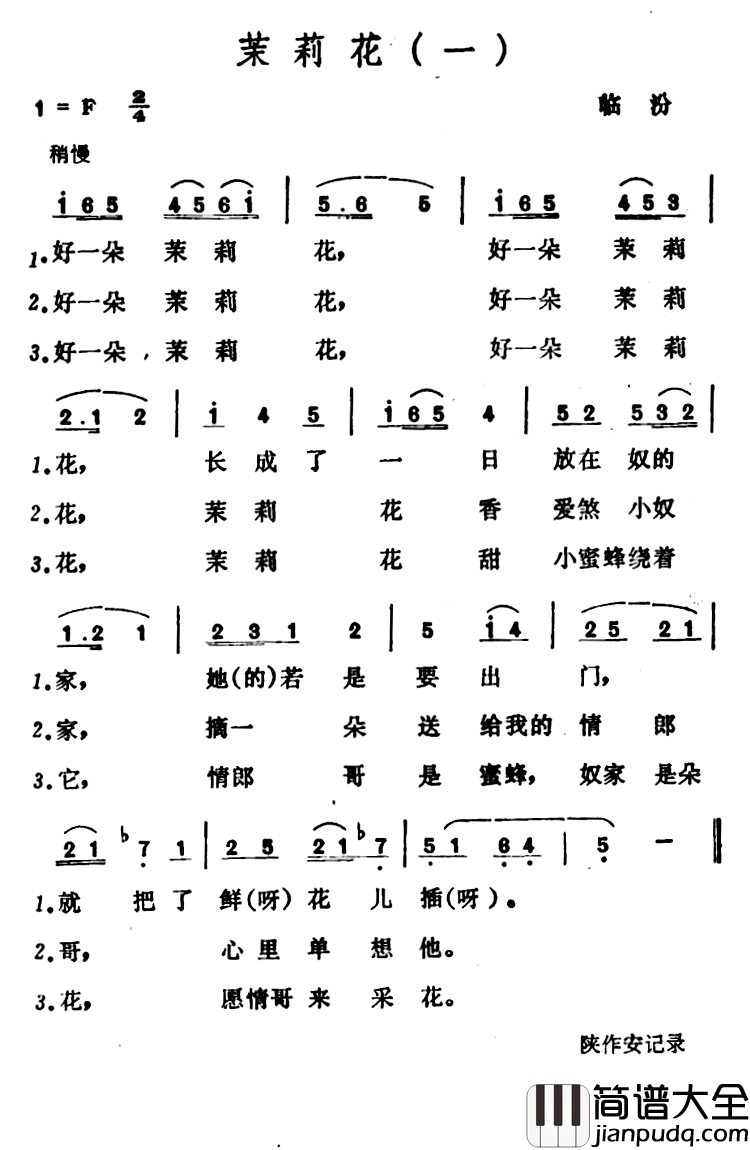 茉莉花(一)
1=F 2/4 临汾
稍慢
i65 456i | 5.6 5 | i65 453 |
1.好一朵 茉莉 花, 好一朵 茉莉
2.好一朵 茉莉 花, 好一朵 茉莉
3.好一朵 茉莉 花, 好一朵 茉莉
2.1 2 | i 4 5 | i65 4 | 52 532 |
1.花, 长成了 一 日 放在 奴的
2.花, 茉莉 花 香 爱煞 小奴
3.花, 茉莉 花 甜 小蜜蜂绕着
1.2 1 | 2 3 1 2 | 5 i4 | 25 21 |
1.家, 她(的)若 是 要 出 门,
2.家, 摘一 朵 送 给我的 情 郎
3.它, 情郎 哥 是 蜜蜂, 奴家 是朵
21 ♭7 1 | 2 5 21 ♭7 | 51 64 | 5 — ‖
1.就 把了 鲜(呀)花 儿 插(呀)。
2.哥, 心里 单 想 他。
3.花, 愿情哥 来 采 花。
陕作安记录
简谱大全
jianpudq.com